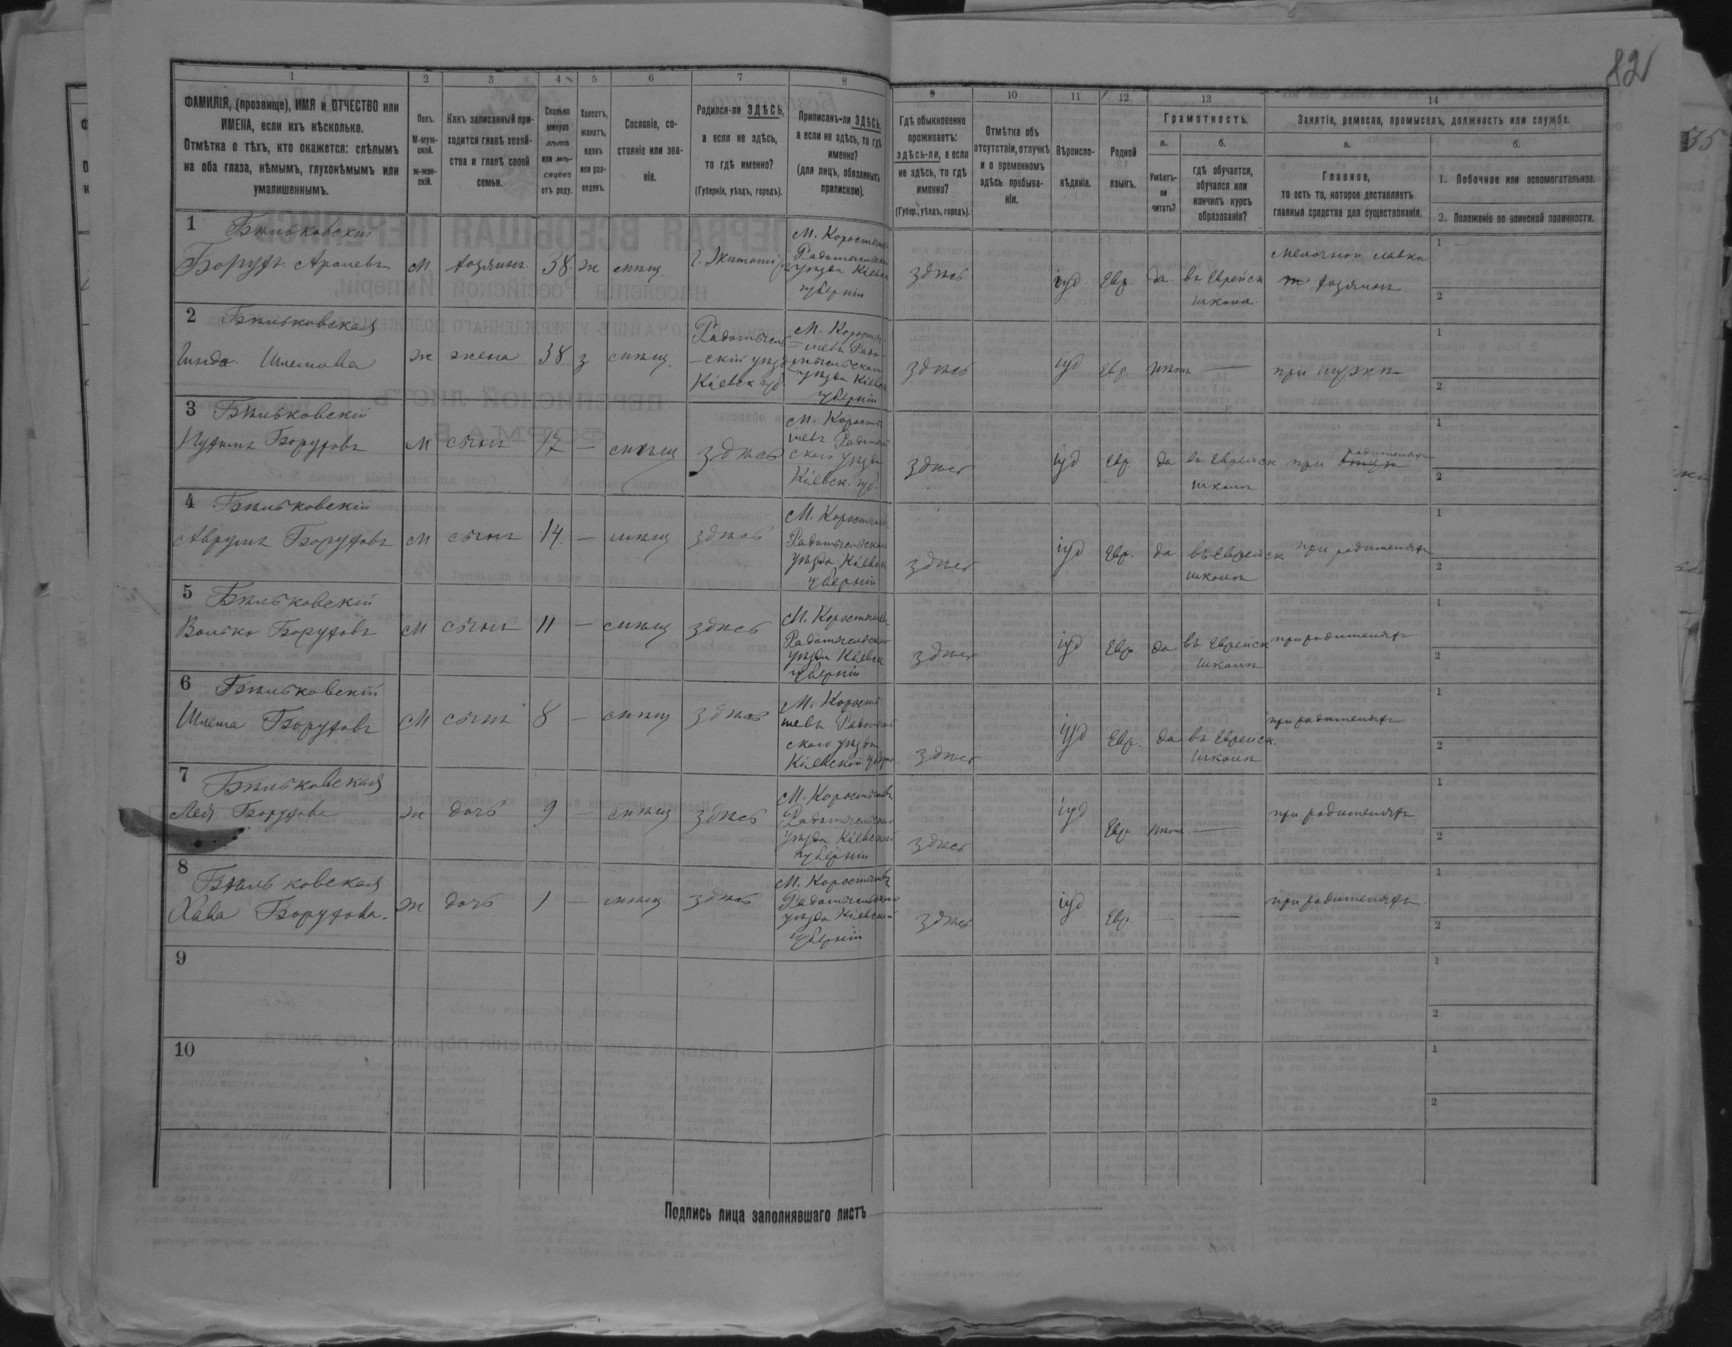 82
1 2 3 4 5 6 7 8
ФАМИЛІЯ, (прозвище), ИМЯ и ОТЧЕСТВО или
ИМЕНА, если ихъ нѣсколько.
Отмѣтка о тѣхъ, кто окажется: слѣпымъ
на оба глаза, нѣмымъ, глухонѣмымъ или
умалишеннымъ.
Полъ.
М-муж-
ской.
ж-жен-
скій.
Какъ записанный при-
ходится главѣ хозяй-
ства и главѣ своей
семьи.
Сколько
минуло
лѣтъ
или мѣ-
сяцевъ
отъ роду.
Холостъ,
женатъ,
вдовъ
или раз-
веденъ.
Сословіе, со-
стояніе или зва-
ніе.
Родился-ли ЗДѢСЬ,
а если не здѣсь,
то гдѣ именно?
(Губернія, уѣздъ, городъ).
Приписанъ-ли ЗДѢСЬ,
а если не здѣсь, то гдѣ
именно?
(для лицъ, обязанныхъ
припискою).
9 10 11 12 13 14
Гдѣ обыкновенно
проживаетъ:
здѣсь-ли, а если
не здѣсь, то гдѣ
именно?
(Губер., уѣздъ, городъ).
Отмѣтка объ
отсутствіи, отлучкѣ
и о временномъ
здѣсь пребыва-
ніи.
Вѣроиспо-
вѣданіе.
Родной
языкъ.
Грамотность.
а.
Умѣетъ-
ли
читать?
б.
гдѣ обучается,
обучался или
кончилъ курсъ
образованія?
Занятіе, ремесло, промыселъ, должность или служба.
а.
Главное,
то есть то, которое доставляетъ
главныя средства для существованія.
б.
1. Побочное или вспомогательное.
2. Положеніе по воинской повинности.
1 Бѣльковскій
Борухъ Аролевъ м хозяинъ 38 ж мѣщ. г. Житоміръ
М. Коростышевъ
Радомысльск
уѣзда Кіевск
губерніи
здѣсь іуд. Евр. да въ Еврейск
школѣ
мелочной лавки
хозяинъ
1
2
2 Бѣльковская
Шлемова ж жена 38 з мѣщ
Радомысль
-скій уѣзд
Кіевск губ
М. Корост
-шевъ Радо
мысльскаго
уѣзда Кіевск
губерніи
здѣсь іуд евр. нѣтъ — при мужѣ
1
2
3 Бѣльковскій
Нухимъ Боруховъ м сынъ 17 — мѣщ здѣсь
М. Корост
шевъ Радомысль
ского уѣзда
Кіевск. губ.
здѣсь іуд евр да въ Еврейск
школѣ
при родителяхъ
1
2
4 Бѣльковскій
Аврумъ Боруховъ м сынъ 14. — мѣщ здѣсь
М. Коростышев
Радомысльскаго
уѣзда Кіевск
губерніи
здѣсь іуд Евр. да въ Еврейск
школѣ
при родителяхъ
1
2
5 Бѣльковскій
Волько Боруховъ м сынъ 11 — мѣщ здѣсь
М. Коростышев
Радомысльскаго
уѣзда Кіевск
губерніи
здѣсь іуд Евр. да въ Еврейск
школѣ
при родителяхъ
1
2
6 Бѣльковскій
Шлема Боруховъ м сынъ 8 — мѣщ здѣсь
М. Корост
шевъ Радомысль
ского уѣзда
Кіевской губер
здѣсь іуд Евр. да въ Еврейск.
школѣ
при родителяхъ
1
2
7 Бѣльковская
Лея Борухова ж дочь 9 — мѣщ здѣсь
М. Коростышевъ
Радомысльскаго
уѣзда Кіевской
губерніи
здѣсь іуд Евр. нѣтъ — при родителяхъ
1
2
8 Бѣльковская
Хава Борухова. ж дочь 1 — мѣщ здѣсь
М. Коростышевъ
Радомысльскаго
уѣзда Кіевской
губерніи
здѣсь іуд Евр. — — при родителяхъ.
1
2
9
1
2
10
1
2
Подпись лица заполнявшаго листъ